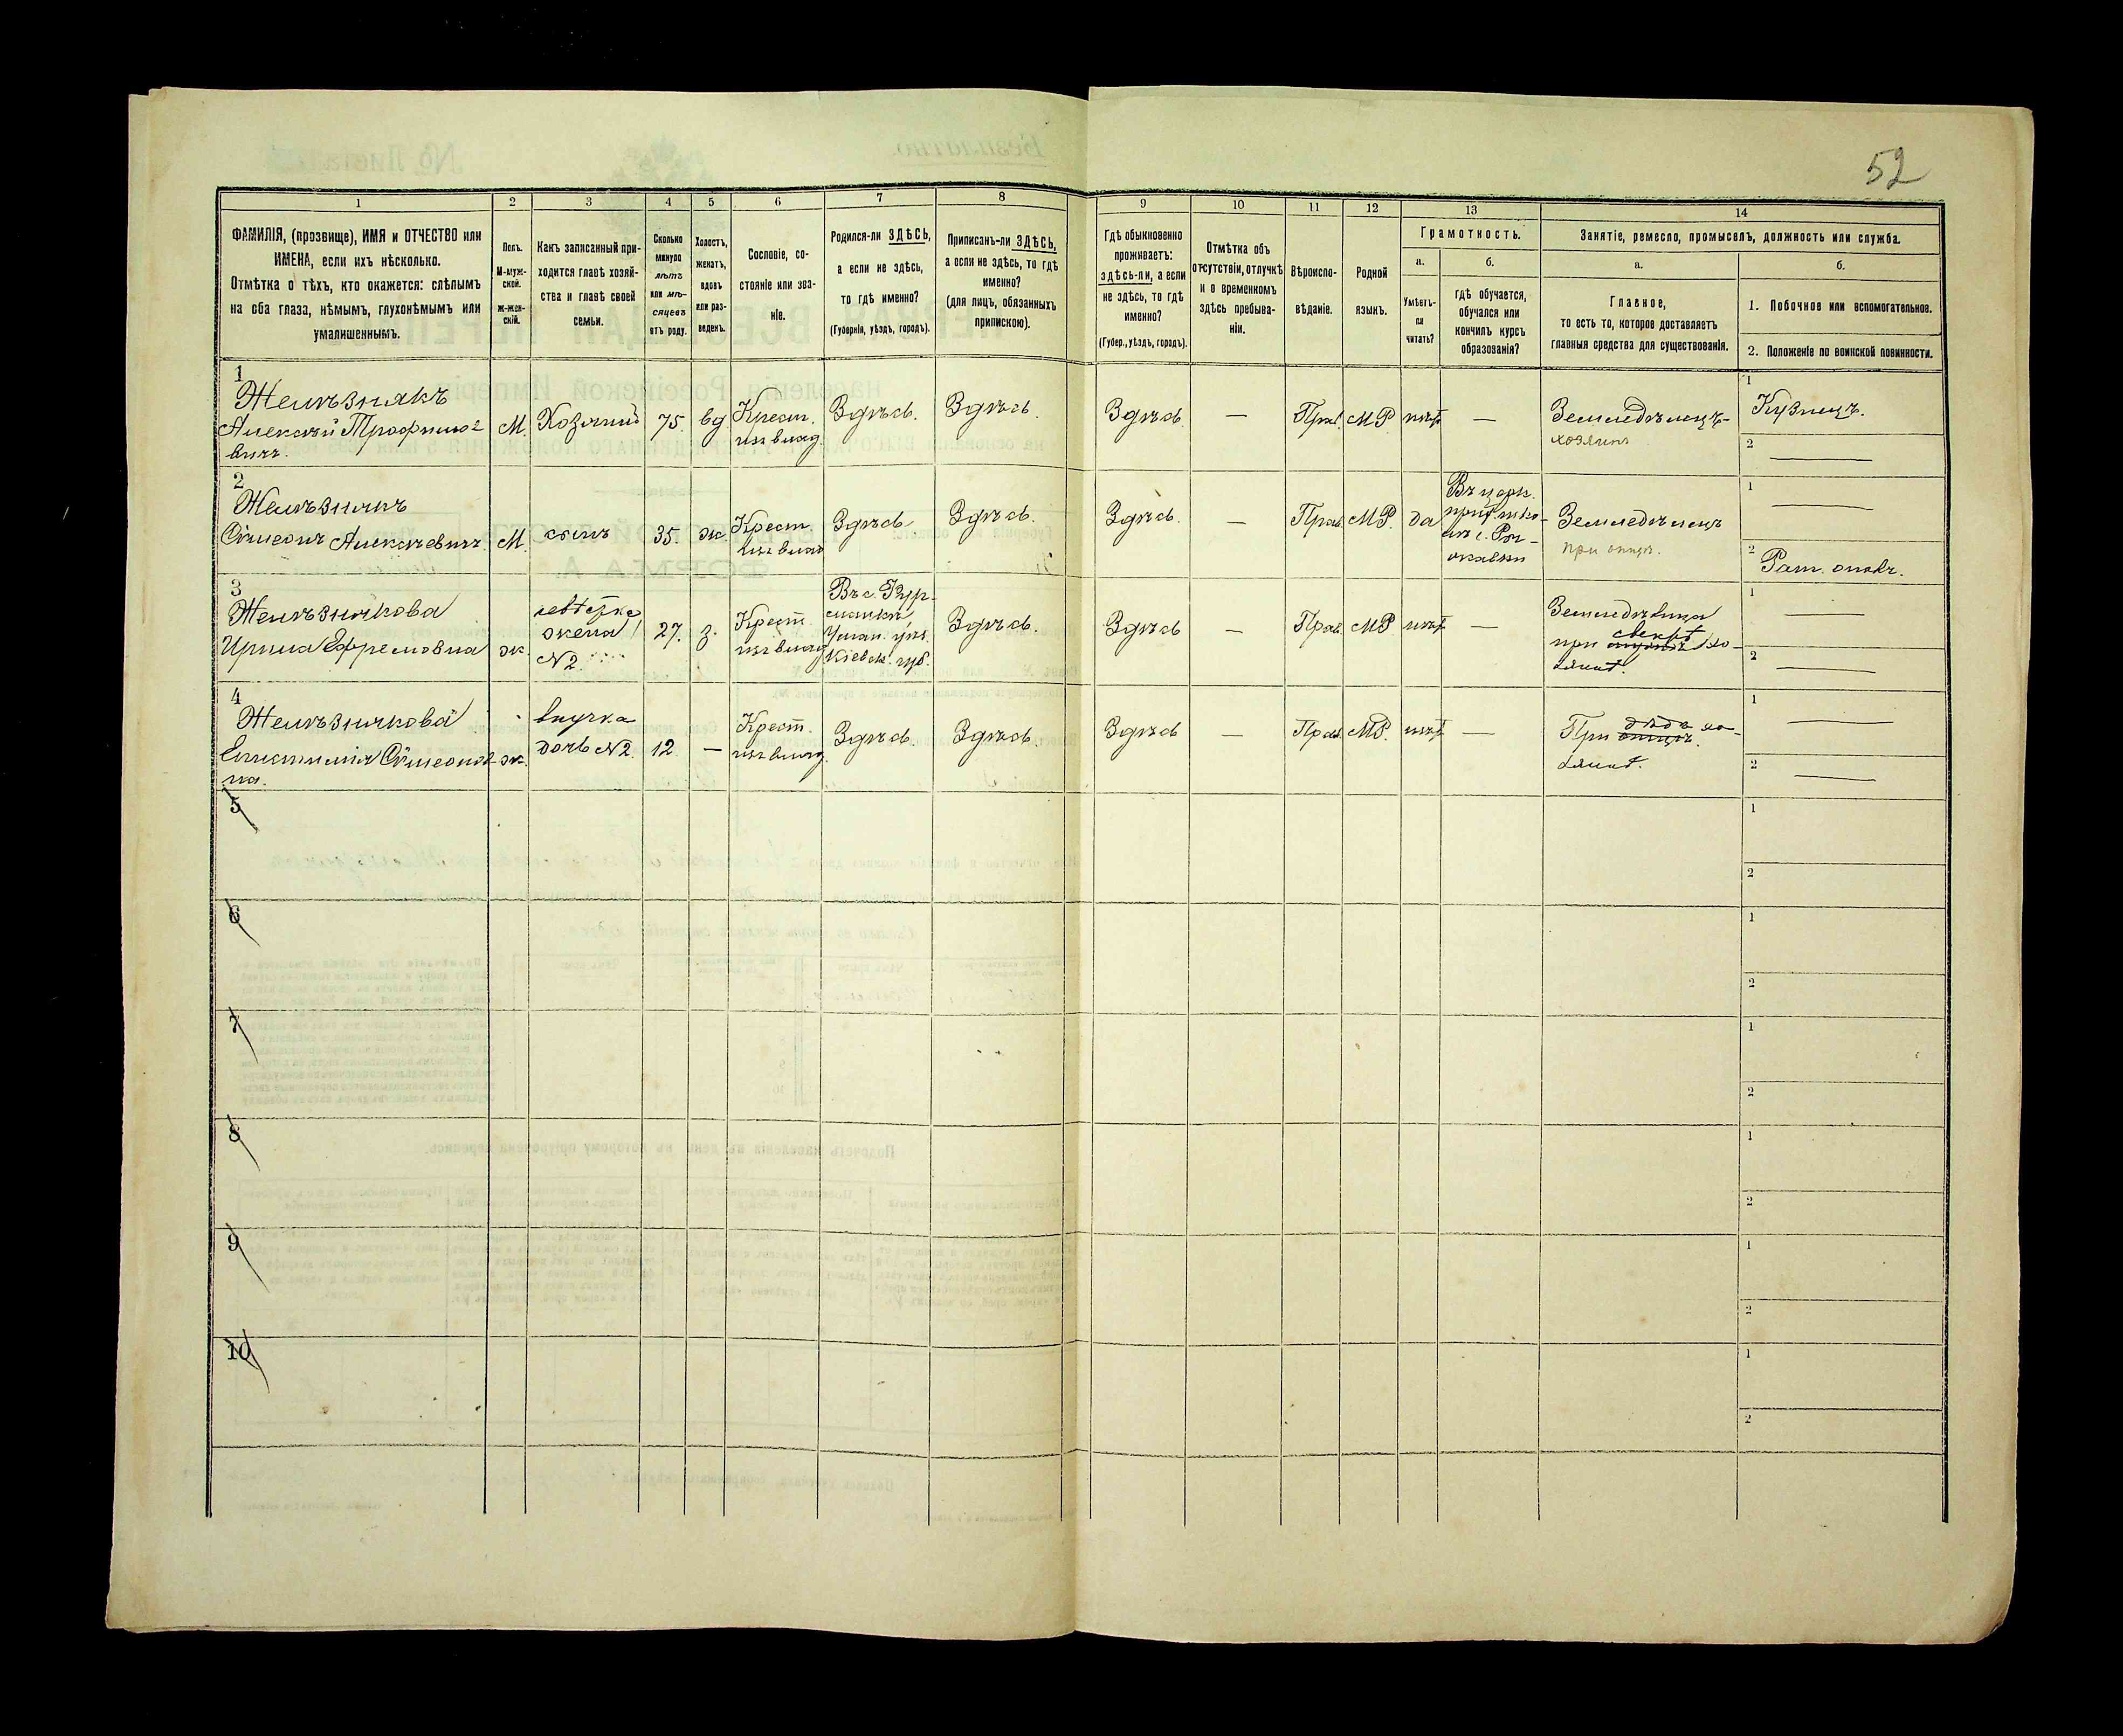 52
1
2
3
4
5
6
7
8
9
10
11
12
13
14
ФАМИЛІЯ, (прозвище), ИМЯ и ОТЧЕСТВО или
ИМЕНА, если ихъ нѣсколько.
Отмѣтка о тѣхъ, кто окажется: слѣпымъ
на оба глаза, нѣмымъ, глухонѣмымъ или
умалишеннымъ.
Полъ.
М-муж-
ской.
ж-жен-
скій.
Какъ записанный при-
ходится главѣ хозяй-
ства и главѣ своей
семьи.
Сколько
минуло
лѣтъ
или мѣ-
сяцевъ
отъ роду.
Холостъ,
женатъ,
вдовъ
или раз-
веденъ.
Сословіе, со-
стояніе или зва-
ніе.
Родился-ли ЗДѢСЬ,
а если не здѣсь,
то гдѣ именно?
(Губернія, уѣздъ, городъ).
Приписанъ-ли ЗДѢСЬ,
а если не здѣсь, то гдѣ
именно?
(для лицъ, обязанныхъ
припискою).
Гдѣ обыкновенно
проживаетъ:
здѣсь-ли, а если
не здѣсь, то гдѣ
именно?
(Губер., уѣздъ, городъ).
Отмѣтка объ
отсутствіи, отлучкѣ
и о временномъ
здѣсь пребыва-
ніи.
Вѣроиспо-
вѣданіе.
Родной
языкъ.
Грамотность.
а.
Умѣетъ-
ли
читать?
б.
гдѣ обучается,
обучался или
кончилъ курсъ
образованія?
Занятіе, ремесло, промыселъ, должность или служба.
а.
Главное,
то есть то, которое доставляетъ
главныя средства для существованія.
б.
1. Побочное или вспомогательное.
2. Положеніе по воинской повинности.
1
Желѣзнякъ
Алексѣй Трофимо-
вичъ.
М.
Хозяинъ
75.
вд
Крест.
изъ влад.
Здѣсь.
Здѣсь.
Здѣсь
—
Прав.
МР
нѣт
—
Земледѣлецъ-
хозяинъ
1
Кузнецъ.
2
2
Желѣзнякъ
Сѵмеонъ Алексѣевичъ
М.
сынъ
35.
ж.
Крест.
изъ влад
Здѣсь
Здѣсь.
Здѣсь.
—
Прав.
МР.
да
Въ церк.
прих. шко-
лѣ с.
Земледѣлецъ
при отцѣ.
1
2
Рат. ополч.
3
Желѣзнякова
Ирина Ефремовна
ж.
невѣстка
жена
N2
27.
з.
Крест.
изъ влад
Въ с.
Уман. уѣз.
Кіевск. губ.
Здѣсь.
Здѣсь
—
Прав.
МР
нѣт
—
Земледѣлица
свекрѣ
при хо-
зяинѣ.
1
2
4
Желѣзнякова
Сѵмеонов-
на.
ж.
внучка
дочь N2.
12
—
Крест.
изъ влад.
Здѣсь.
Здѣсь.
Здѣсь
—
Прав.
МР.
нѣт
—
дѣдѣ
При отцѣ хо-
зяинѣ.
1
2
5
1
2
6
1
2
7
1
2
8
1
2
9
1
2
10
1
2